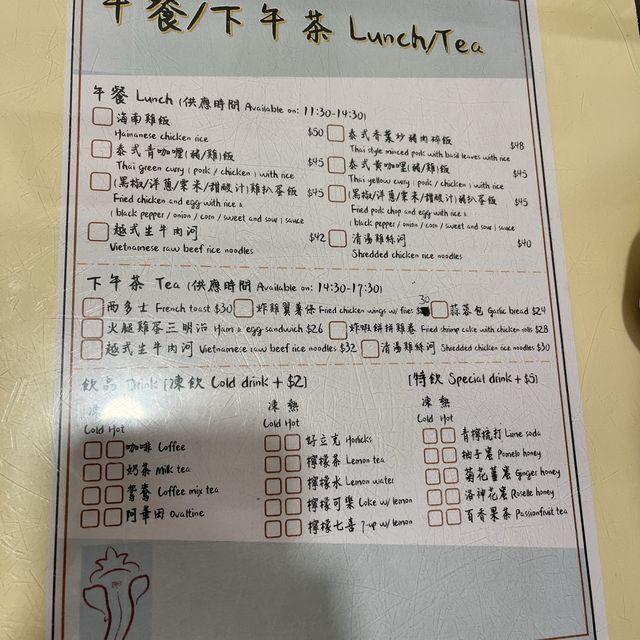 午餐/下午茶 Lunch/Tea
午餐 Lunch (供應時間 Available on: 11:30-14:30)
海南雞飯
Hainanese chicken rice $50
泰式香葉炒豬肉碎飯
Thai style minced pork with basil leaves with rice $48
泰式青咖喱(豬/雞)飯 $45
Thai green curry (pork / chicken) with rice
泰式黃咖喱(豬/雞)飯 $45
Thai yellow curry (pork / chicken) with rice
(黑椒/洋蔥/粟米/甜酸汁)雞扒蛋飯 $45
Fried chicken and egg with rice &
(black pepper / onion / corn / sweet and sour) sauce
(黑椒/洋蔥/粟米/甜酸汁)豬扒蛋飯 $45
Fried pork chop and egg with rice &
(black pepper / onion / corn / sweet and sour) sauce
越式生牛肉河 $42
Vietnamese raw beef rice noodles
清湯雞絲河 $40
Shredded chicken rice noodles
下午茶 Tea (供應時間 Available on: 14:30-17:30)
西多士 French toast $30 炸雞翼薯條 Fried chicken wings w/ fries $30 蒜蓉包 Garlic bread $24
火腿雞蛋三明治 Ham & egg sandwich $26 炸蝦餅拼雞卷 Fried shrimp cake with chicken rolls $28
越式生牛肉河 Vietnamese raw beef rice noodles $32 清湯雞絲河 Shredded chicken rice noodles $30
飲品 Drink [凍飲 Cold drink + $2] [特飲 Special drink + $5]
凍 熱
Cold Hot
咖啡 Coffee
奶茶 Milk tea
鴛鴦 Coffee mix tea
阿華田 Ovaltine
凍 熱
Cold Hot
好立克 Horlicks
檸檬茶 Lemon tea
檸檬水 Lemon water
檸檬可樂 Coke w/ lemon
檸檬七喜 7-up w/ lemon
凍 熱
Cold Hot
青檸梳打 Lime soda
柚子蜜 Pomelo honey
菊花薑蜜 Ginger honey
洛神花蜜 Roselle honey
百香果茶 Passionfruit tea